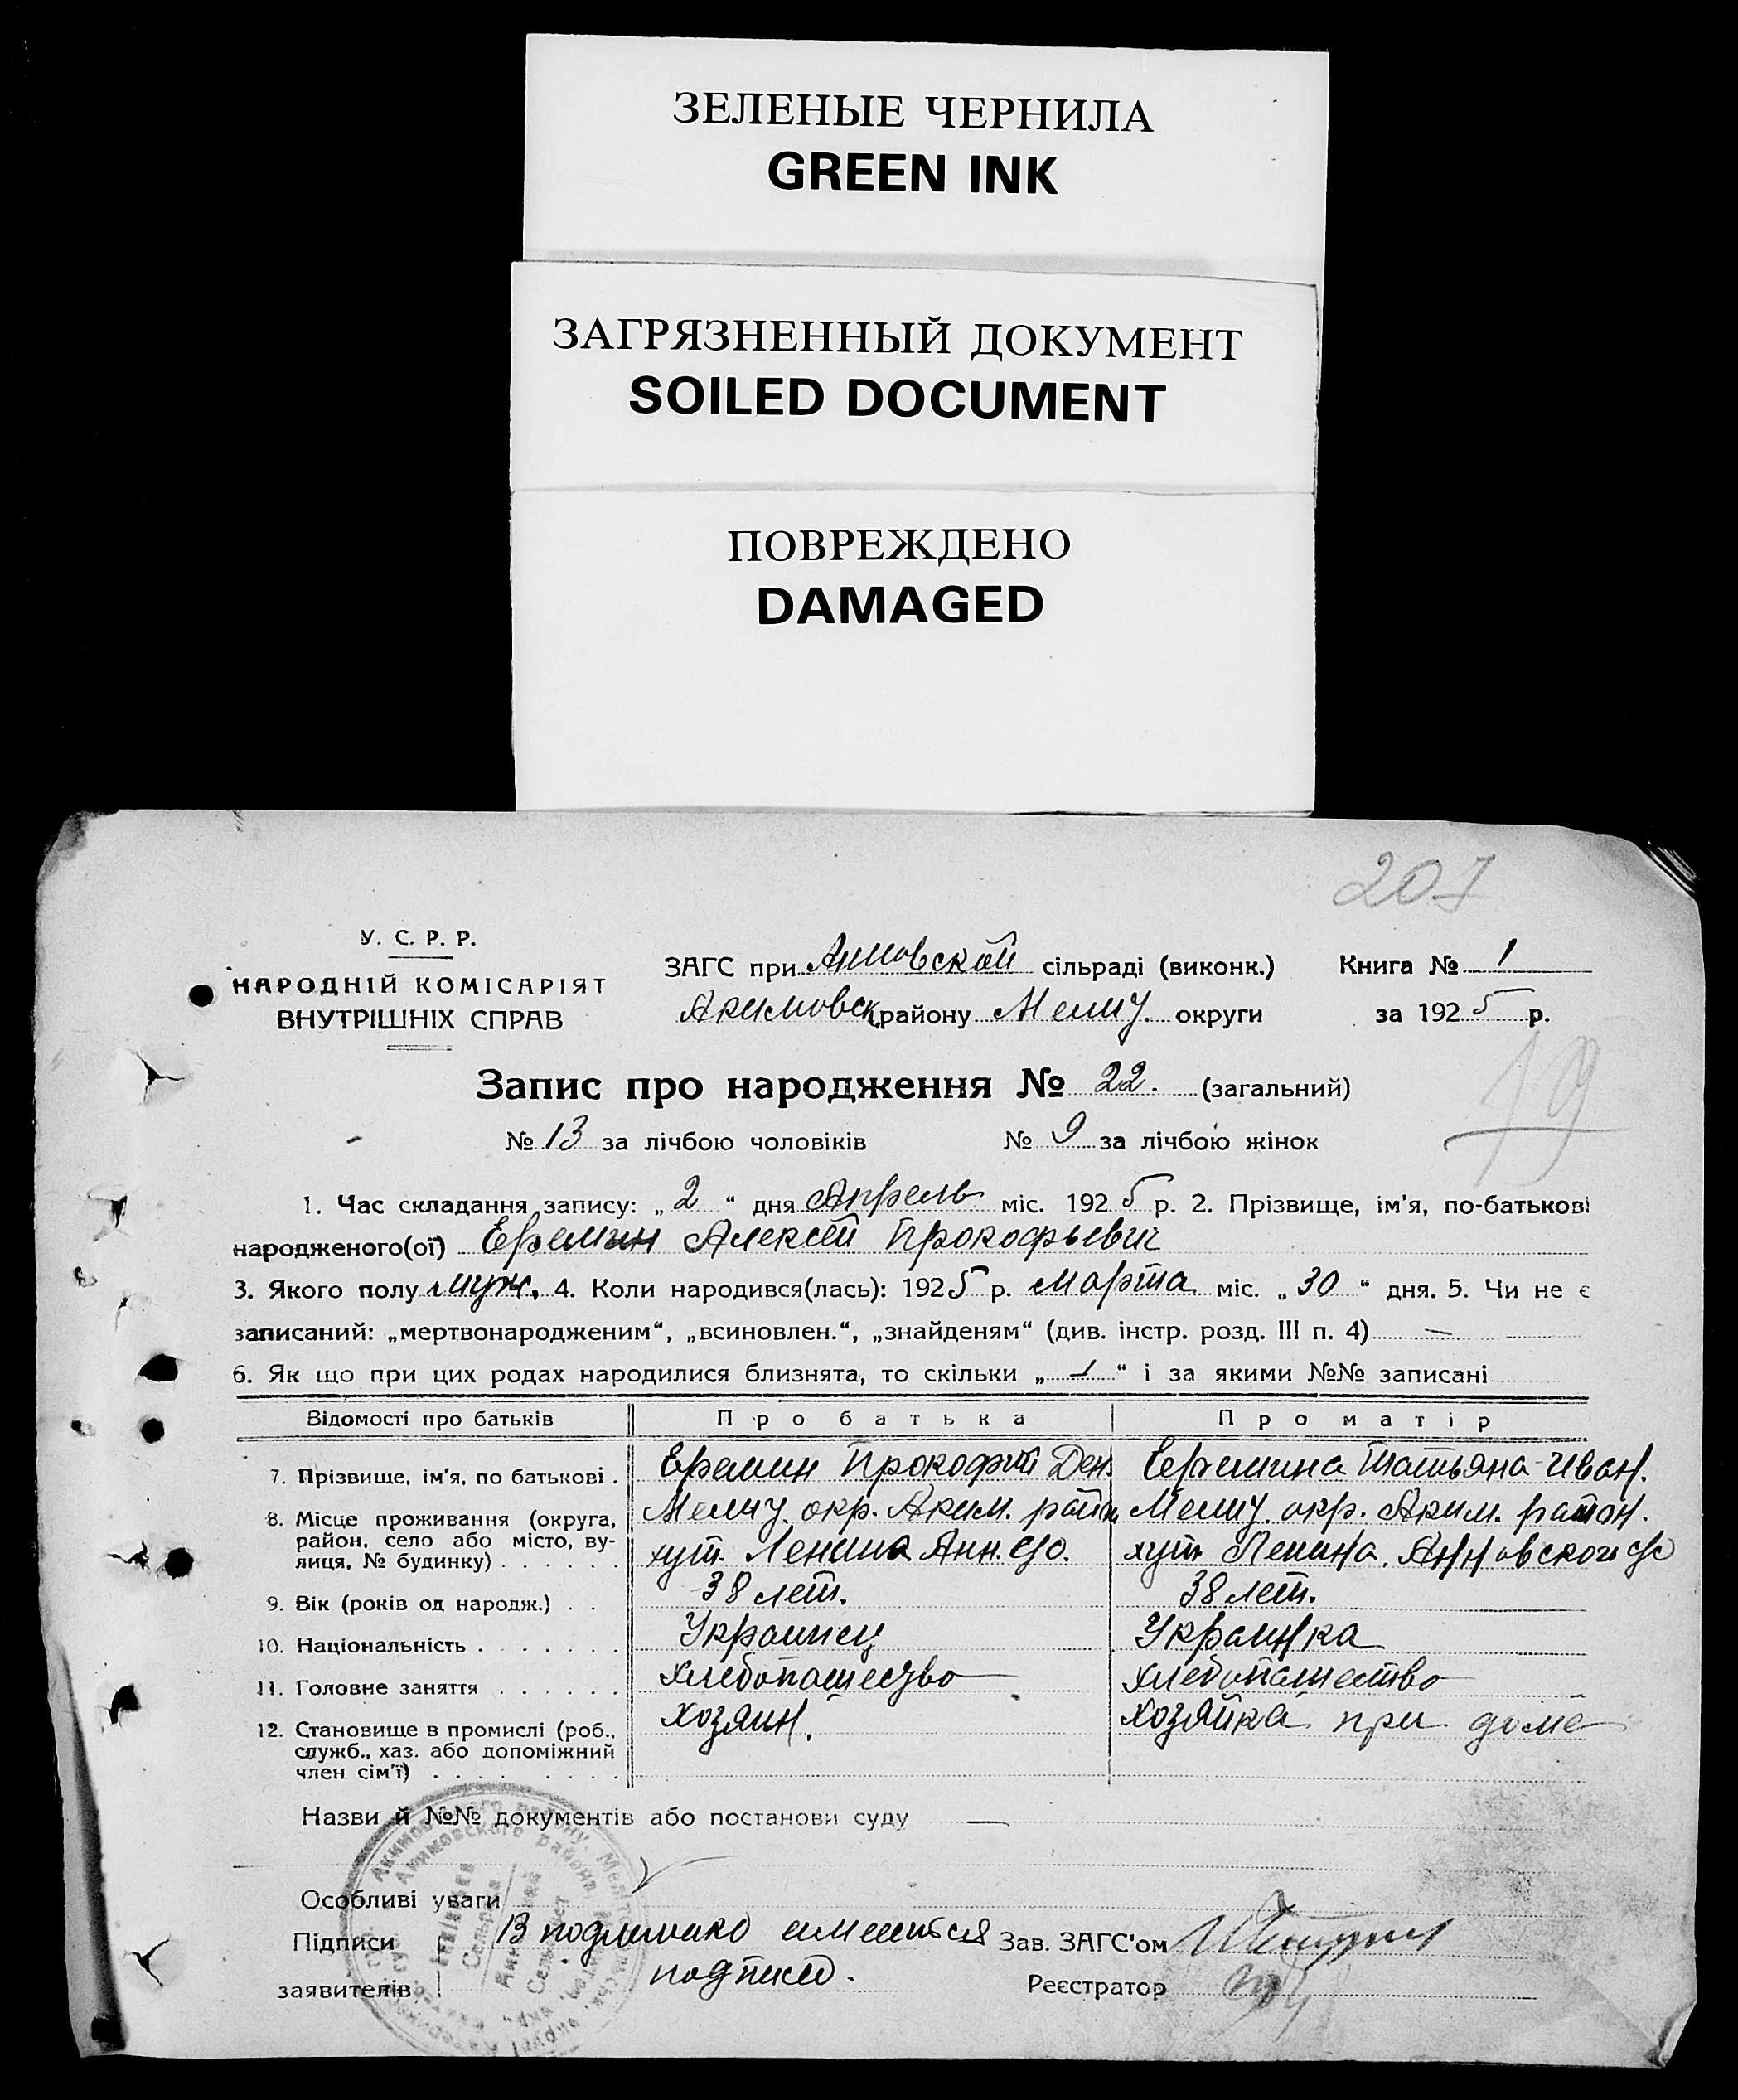 ЗЕЛЕНЫЕ ЧЕРНИЛА
GREEN INK
ЗАГРЯЗНЕННЫЙ ДОКУМЕНТ
SOILED DOCUMENT
ПОВРЕЖДЕНО
DAMAGED
207
У. С. Р. Р.
НАРОДНІЙ КОМІСАРІЯТ
ВНУТРІШНІХ СПРАВ
ЗАГС при Анновской сільраді (виконк.) Книга № 1
Акимовск. району Мелит. округи за 1925 р.
19
Запис про народження № 22. (загальний)
№ 13 за лічбою чоловіків № 9 за лічбою жінок
1. Час складання запису: „2“ дня Апрель міс. 1925 р. 2. Прізвище, ім'я, по-батькові
народженого(ої) Еремин Алексей Прокофьевич
3. Якого полу муж. 4. Коли народився(лась): 1925 р. Марта міс. „30“ дня. 5. Чи не є
записаний: „мертвонародженим“, „всиновлен.“, „знайденям“ (див. інстр. розд. III п. 4) —
6. Як що при цих родах народилися близнята, то скільки „—“ і за якими №№ записані
Відомості про батьків Про батька Про матір
7. Прізвище, ім'я, по батькові . Еремин Прокофий Ден. Еремина Татьяна Иван.
8. Місце проживання (округа, Мелит. окр. Аким. район Мелит. окр. Аким. район.
район, село або місто, ву-
лиця, № будинку) . . . . . хут. Ленина Анн. с/с. хут. Ленина. Анновского с/с
9. Вік (років од народж.) . . 38 лет. 38 лет.
10. Національність . . . . . . . Украинец Украинка
11. Головне заняття . . . . . . хлебопашество хлебопашество
12. Становище в промислі (роб., хозяин. хозяйка при доме
служб., хаз. або допоміжний
член сім'ї) . . . . . . . . .
Назви й №№ документів або постанови суду —
Особливі уваги
Підписи В подлинико имеются Зав. ЗАГС'ом
заявителів подписи. Реєстратор